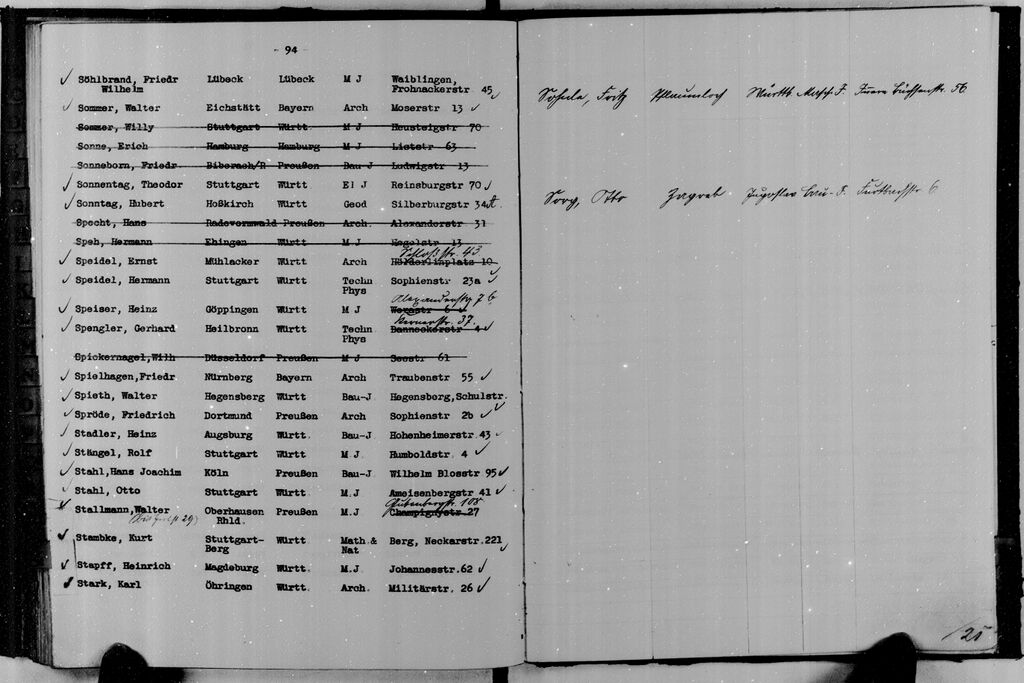 - 94 -
✓ Söhlbrand, Friedr Lübeck Lübeck M J Waiblingen,
Wilhelm Frohnackerstr 45 ✓
✓ Sommer, Walter Eichstätt Bayern Arch Moserstr 13 ✓
Sommer, Willy Stuttgart Württ. M J Heusteigstr 70
Sonne, Erich Hamburg Hamburg M J Liststr 63
Sonneborn, Friedr Biberach/R Preußen Bau-J Ludwigstr 13
✓ Sonnentag, Theodor Stuttgart Württ El J Reinsburgstr 70 ✓
✓ Sonntag, Hubert Hoßkirch Württ Geod Silberburgstr 34
Specht, Hans Radevormwald Preußen Arch. Alexanderstr 31
Speh, Hermann Ehingen Württ M J Hegelstr 13
Schloßstr. 43
✓ Speidel, Ernst Mühlacker Württ Arch Hölderlinplatz 10
✓ Speidel, Hermann Stuttgart Württ Techn Sophienstr 23a ✓
Phys
Alexanderstr 76
✓ Speiser, Heinz Göppingen Württ M J Werastr 6
Kernerstr. 37.
✓ Spengler, Gerhard Heilbronn Württ Techn Danneckerstr 4 ✓
Phys
Spickernagel,Wilh Düsseldorf Preußen M J Seestr 61
✓ Spielhagen,Friedr Nürnberg Bayern Arch Traubenstr 55 ✓
✓ Spieth, Walter Hegensberg Württ Bau-J Hegensberg,Schulstr.
✓ Spröde, Friedrich Dortmund Preußen Arch Sophienstr 2b ✓
✓ Stadler, Heinz Augsburg Württ. Bau-J Hohenheimerstr.43
✓ Stängel, Rolf Stuttgart Württ. M.J. Humboldstr. 4 ✓
✓ Stahl,Hans Joachim Köln Preußen Bau-J Wilhelm Blosstr 95 ✓
✓ Stahl, Otto Stuttgart Württ M.J Ameisenbergstr 41 ✓
Gutenbergstr. 108
Stallmann,Walter Oberhausen Preußen M.J Championystr 27
Rhld.
✓ Stambke, Kurt Stuttgart- Württ Math.& Berg, Neckarstr.221
Berg Nat ✓
✓ Stapff, Heinrich Magdeburg Württ M.J. Johannesstr.62 ✓
✓ Stark, Karl Öhringen Württ. Arch. Militärstr. 26 ✓
Fritz Pflaumloch Württb Masch. J. Büchsenstr. 56
Sorg, Otto Zagreb Jugoslav Bau-J. Furtbachstr 6
125